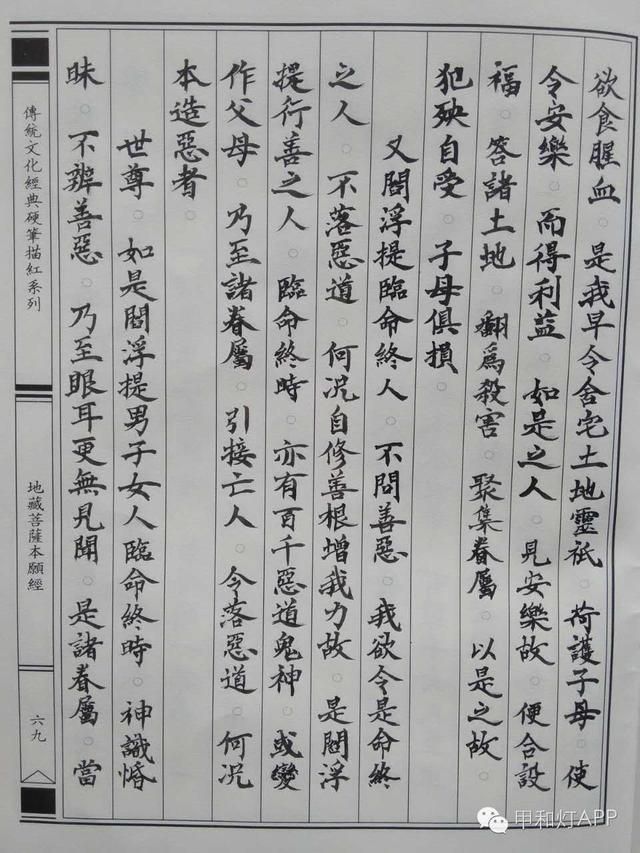 欲食腥血。是我早令舍宅土地靈祇。荷護子母。使
令安樂。而得利益。如是之人。見安樂故。便合設
福。答諸土地。翻爲殺害。聚集眷屬。以是之故。
犯殃自受。子母俱損。
又閻浮提臨命終人。不問善惡。我欲令是命終
之人。不落惡道。何況自修善根增我力故。是閻浮
提行善之人。臨命終時。亦有百千惡道鬼神。或變
作父母。乃至諸眷屬。引接亡人。令落惡道。何況
本造惡者。
世尊。如是閻浮提男子女人臨命終時。神識惛
昧。不辨善惡。乃至眼耳更無見聞。是諸眷屬。當
傳統文化經典硬筆描紅系列
地藏菩薩本願經
六九
甲和灯APP